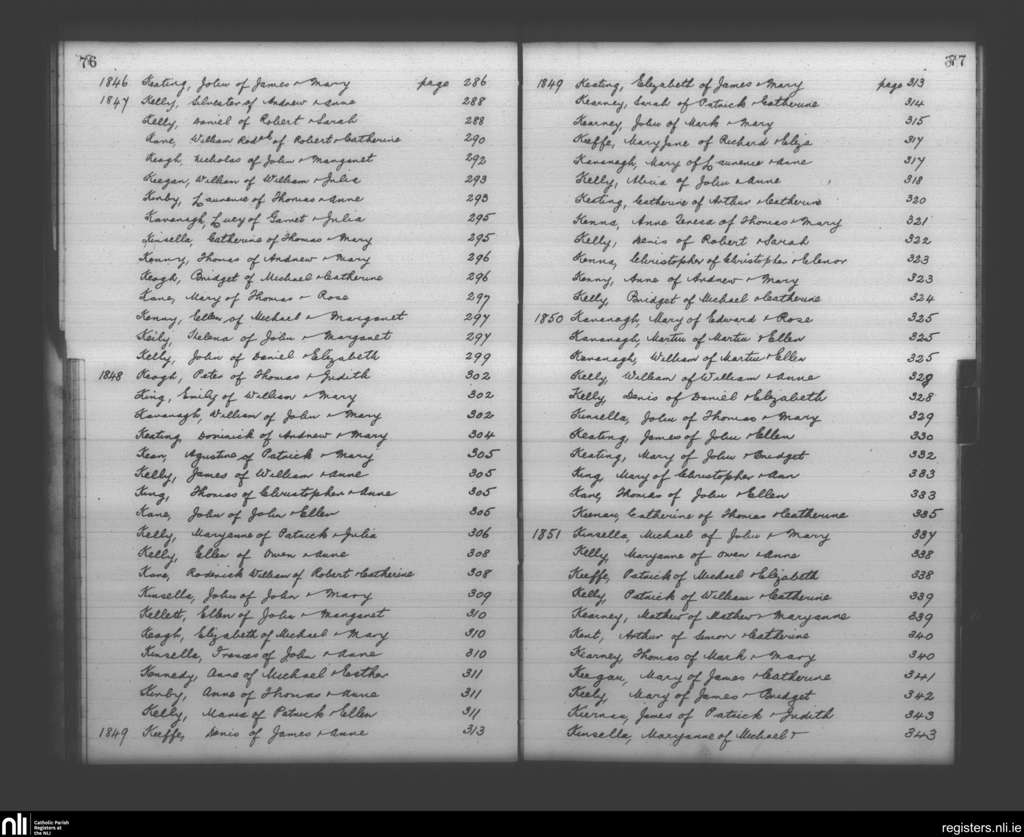 76
1846 Keating, John of James + Mary page 286
1847 Kelly, Silvester of Andrew + Anne 288
Kelly, Daniel of Robert + Sarah 288
Kane, William Rod of Robert + Catherine 290
Keogh, Nicholas of John + Margaret 292
Keegan, William of William + Julia 293
Kirby, Laurence of Thomas + Anne 293
Kavanagh, Lucy of Garret + Julia 295
Kinsella, Catherine of Thomas + Mary 295
Kenny, Thomas of Andrew + Mary 296
Keogh, Bridget of Michael + Catherine 296
Kane, Mary of Thomas + Rose 297
Kenny, Ellen of Michael + Margaret 297
Keily, Helena of John + Margaret 297
Kelly, John of Daniel + Elizabeth 299
1848 Keogh, Peter of Thomas + Judith 302
King, Emily of William + Mary 302
Kavanagh, William of John + Mary 302
Keating, Dominick of Andrew + Mary 304
Kean, Agustine of Patrick + Mary 305
Kelly, James of William + Anne 305
King, Thomas of Christopher + Anne 305
Kane, John of John + Ellen 306
Kelly, Maryanne of Patrick + Julia 306
Kelly, Ellen of Owen + Anne 308
Kane, Roderick William of Robert + Catherine 308
Kinsella, John of John + Mary 309
Kellett, Ellen of John + Margaret 310
Keogh, Elizabeth of Michael + Mary 310
Kinsella, Frances of John + Anne 310
Kennedy, Anne of Michael + Esther 311
Kirby, Anne of Thomas + Anne 311
Kelly, Maria of Patrick + Ellen 311
1849 Keeffe, Denis of James + Anne 313
77
1849 Keating, Elizabeth of James + Mary page 313
Kearney, Sarah of Patrick + Catherine 314
Kearney, John of Mark + Mary 315
Keeffe, Mary Jane of Richard + Eliza 317
Kavanagh, Mary of Laurence + Anne 317
Kelly, Alicia of John + Anne 318
Keating, Catherine of Arthur + Catherine 320
Kenna, Anne Teresa of Thomas + Mary 321
Kelly, Denis of Robert + Sarah 322
Kenna, Christopher of Christopher + Elenor 323
Kenny, Anne of Andrew + Mary 323
Kelly, Bridget of Michael + Catherine 324
1850 Kavanagh, Mary of Edward + Rose 325
Kavanagh, Martin of Martin + Ellen 325
Kavanagh, William of Martin + Ellen 325
Kelly, William of William + Anne
Kelly, Denis of Daniel + Elizabeth 328
Kinsella, John of Thomas + Mary 329
Keating, James of John + Ellen 330
Keating, Mary of John + Bridget 332
King, Mary of Christopher + Ann 333
Kane, Thomas of John + Ellen 333
Keenan, Catherine of Thomas + Catherine 335
1851 Kinsella, Michael of John + Mary 337
Kelly, Maryanne of Owen + Anne 338
Keeffe, Patrick of Michael + Elizabeth 338
Kelly, Patrick of William + Catherine 339
Kearney, Mathew of Mathew + Maryanne 339
Kent, Arthur of Simon + Catherine 340
Kearney, Thomas of Mark + Mary 340
Keegan, Mary of James + Catherine 341
Keely, Mary of James + Bridget 342
Kiernan, James of Patrick + Judith 343
Kinsella, Maryanne of Michael + 343
nli Catholic Parish
Registers at
the NLI
registers.nli.ie